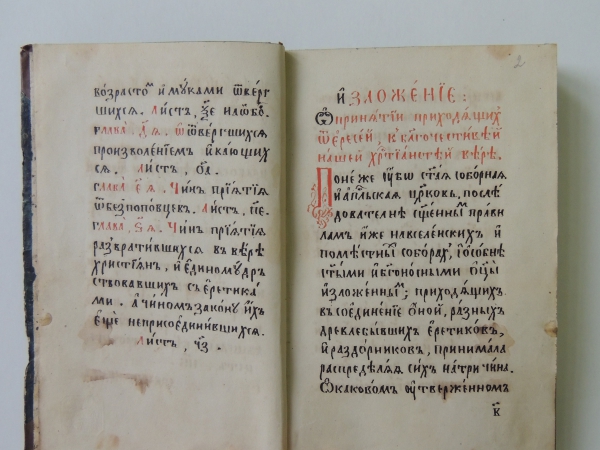 возрастоⷨ и муками ѿверг
шихся. Листъ, у҃е на обо.
глава, д҃я. Ѿ ѿвергшихся
произволенїемъ и кающих
ся. листъ, ѻ҃а.
глава е҃я. Чинъ прїятїя
ѿ безпоповцевъ. листъ, п҃е.
глава, ѕ҃я. Чинъ прїятїя
развратившихся въ вѣрѣ
христїянъ, и единомудр
ствовавшихъ съ еретика
ми. а чиномъ законꙋ ихъ
еще неприсоединившихся.
листъ, ч҃з.
2
Изложенїе:
О принятїи приходящих
ѿ ересей, къ благочестивѣй
нашей хрⷭ҇тїанстѣй вѣрѣ.
Понеже ᲂубѡ ст҃ая соборная
и ап҃льская црⷪ҇ковь, послѣ
дователнѣ сщ҃еннымъ прави
ламъ иже на вселенскихъ и
помѣстныⷯ соборах, и ѻсобнѣ
ст҃ыми и бг҃оносными ѻц҃ы
изложенныⷨ; приходящихъ
въ соединенїе ѻной, разныхъ
древле бывшихъ еретиковъ,
и раздорниковъ, принимала
распредѣляя сихъ на три чина.
Ѡ каковомъ ᲂутвержденномъ
к